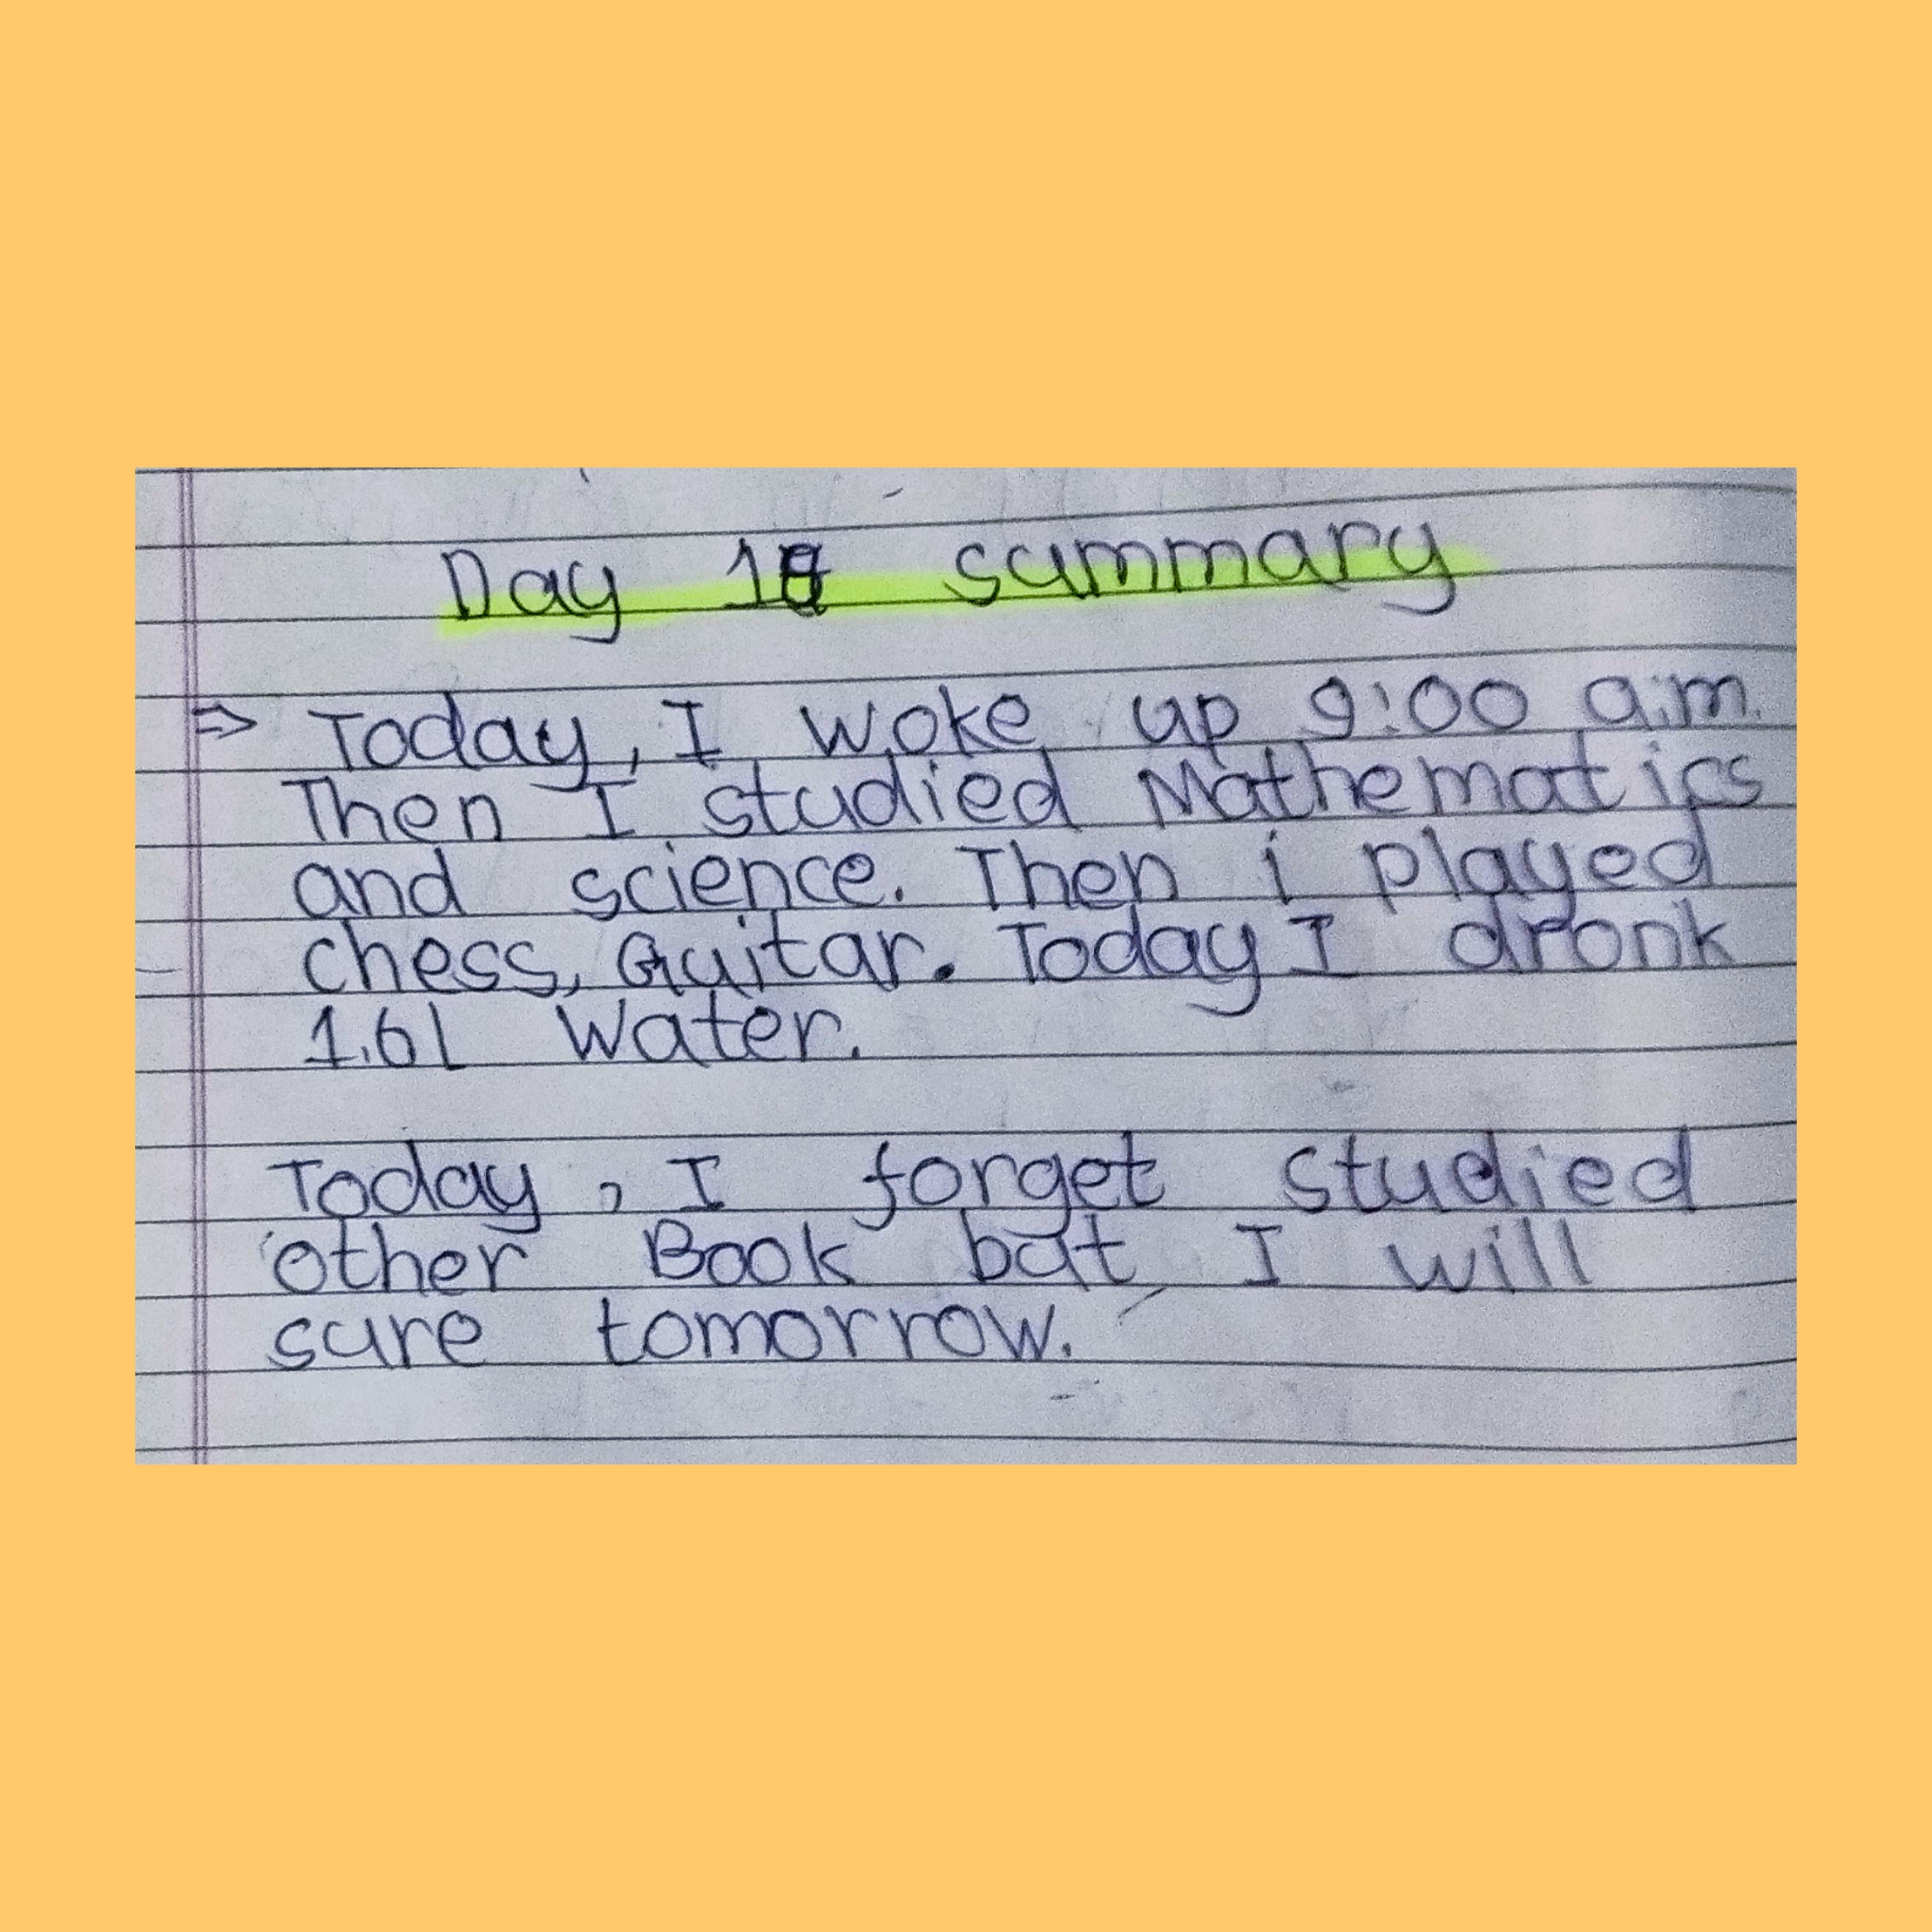 Day 18 summary
⇒ Today, I woke up 9:00 a.m.
Then I studied Mathematics
and science. Then i played
chess, Guitar. Today I dronk
1.6l Water.
Today, I forget studied
other Book but I will
sure tomorrow.